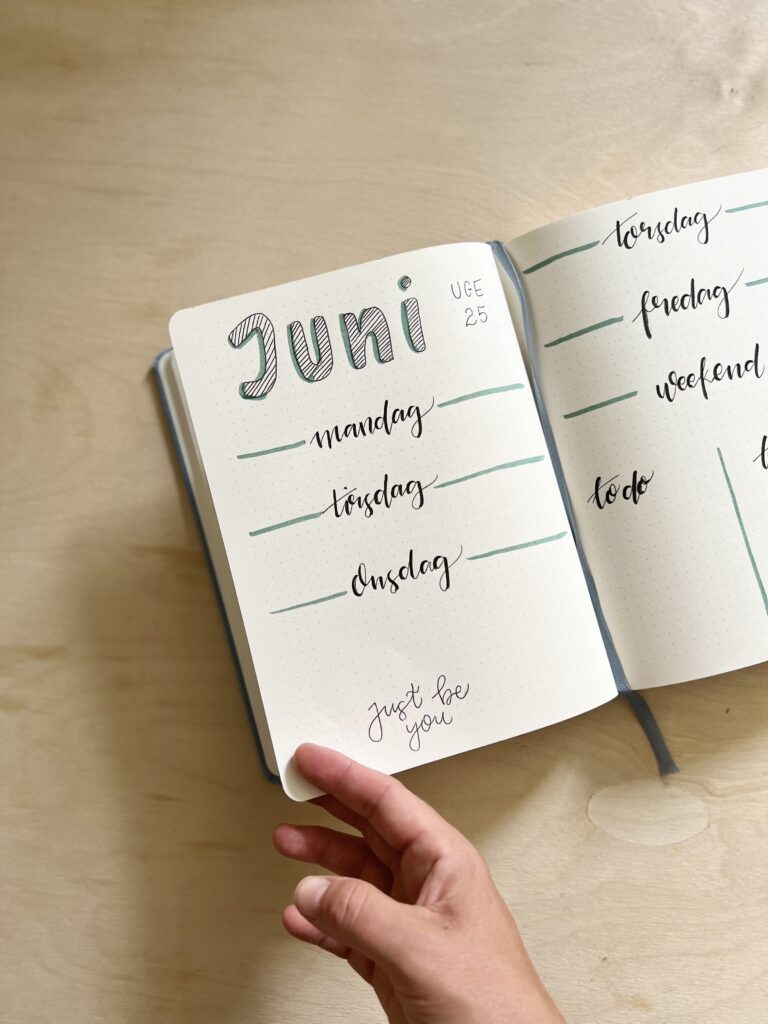 Juni
UGE
25
mandag
tirsdag
Onsdag
Just be
you
torsdag
fredag
weekend
to do